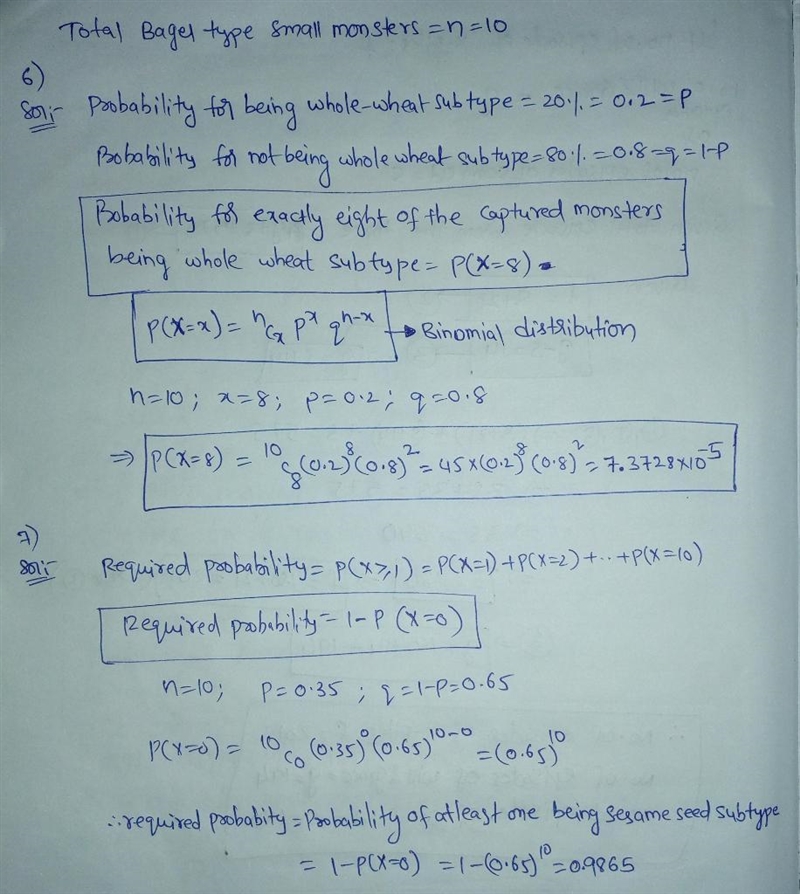 Total Bagel type small monsters = n = 10
6)
Sol:- Probability for being whole-wheat subtype = 20% = 0.2 = P
Probability for not being whole wheat subtype = 80% = 0.8 = q = 1-P
Probability for exactly eight of the captured monsters
being whole wheat subtype = P(X=8)
P(X=x) = ⁿCₓ pˣ qⁿ⁻ˣ → Binomial distribution
n=10; x=8; p=0.2; q=0.8
⇒ P(X=8) = ¹⁰C₈ (0.2)⁸ (0.8)² = 45 × (0.2)⁸ (0.8)² = 7.3728×10⁻⁵
7)
Sol:- Required probability = P(X≥1) = P(X=1) + P(X=2) + .. + P(X=10)
Required probability = 1 - P(X=0)
n=10; P=0.35; q=1-P=0.65
P(X=0) = ¹⁰C₀ (0.35)⁰ (0.65)¹⁰⁻⁰ = (0.65)¹⁰
∴ required probabity = Probability of atleast one being sesame seed subtype
= 1-P(X=0) = 1-(0.65)¹⁰ = 0.9865